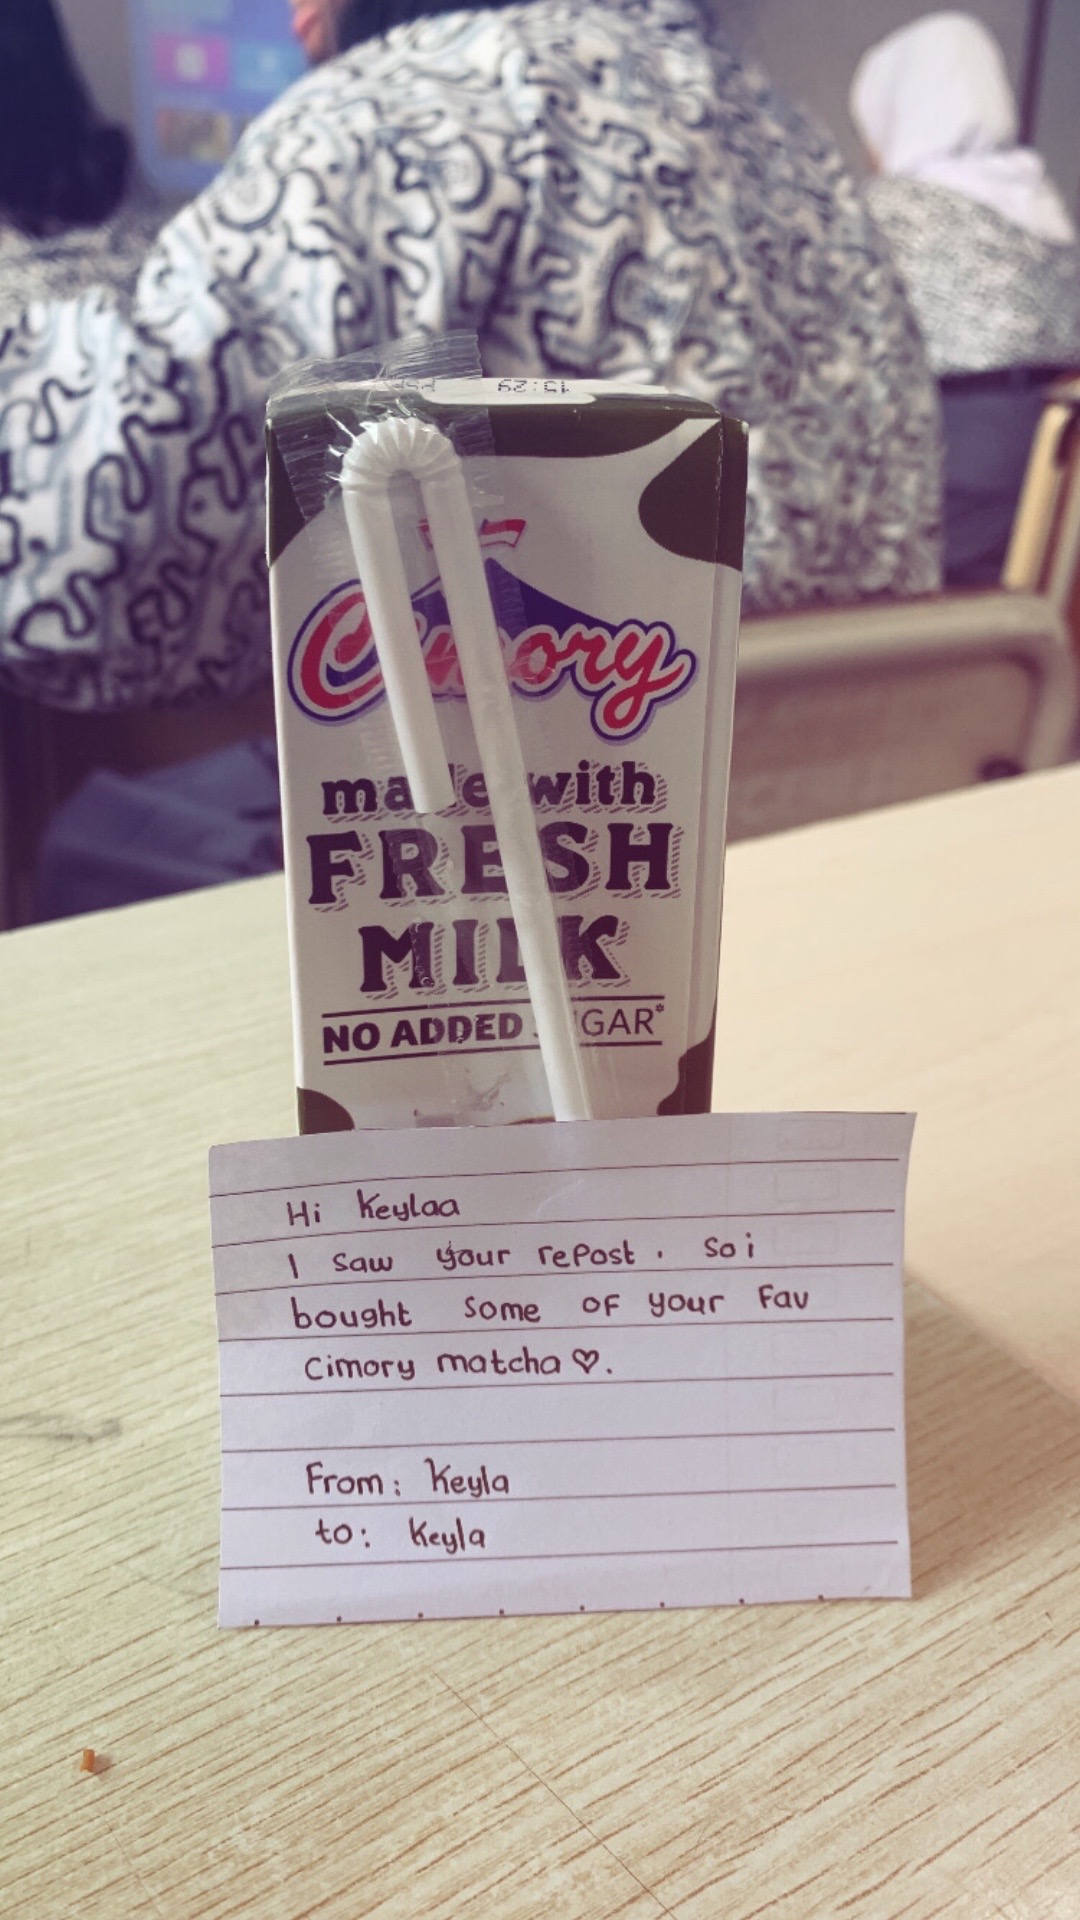 15:29
Cimory
made with
FRESH
MILK
NO ADDED SUGAR*
Hi Keylaa
I saw your repost. so i
bought some of your fav
Cimory matcha ♡.
From: Keyla
to: Keyla